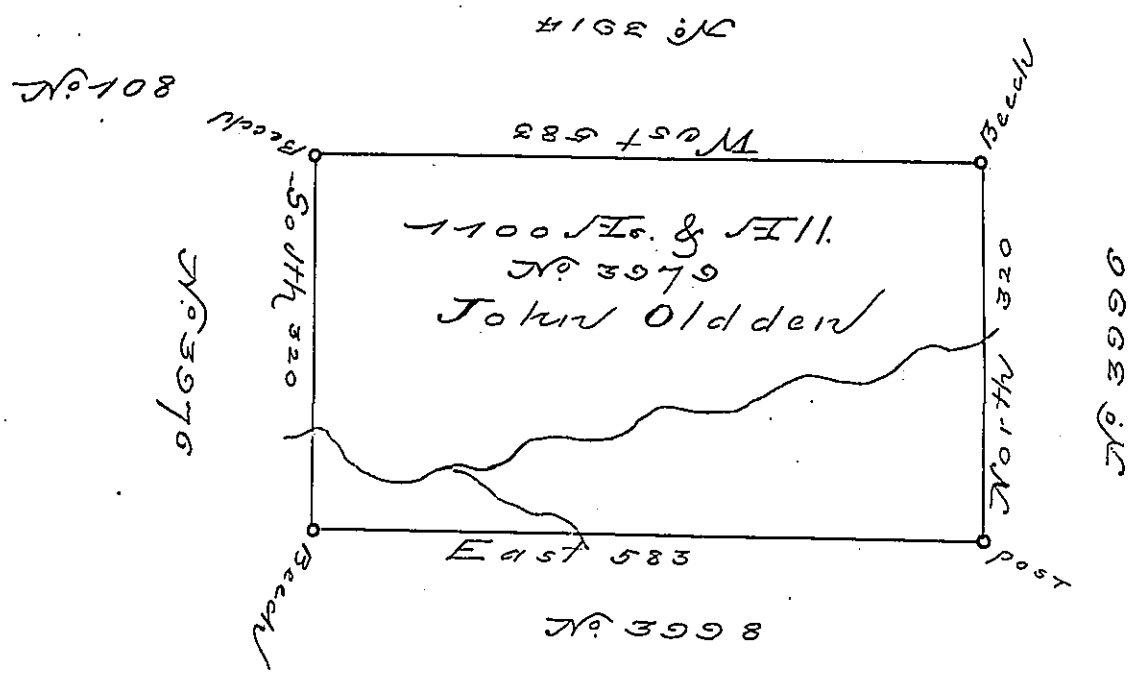 No. 3914
No. 108
Beech
West 583
Beech
South 320
1100 As. & All.
No. 3979
John Oldden
North 320
No. 3976
No. 3996
Beech
East 583
Post
No. 3998